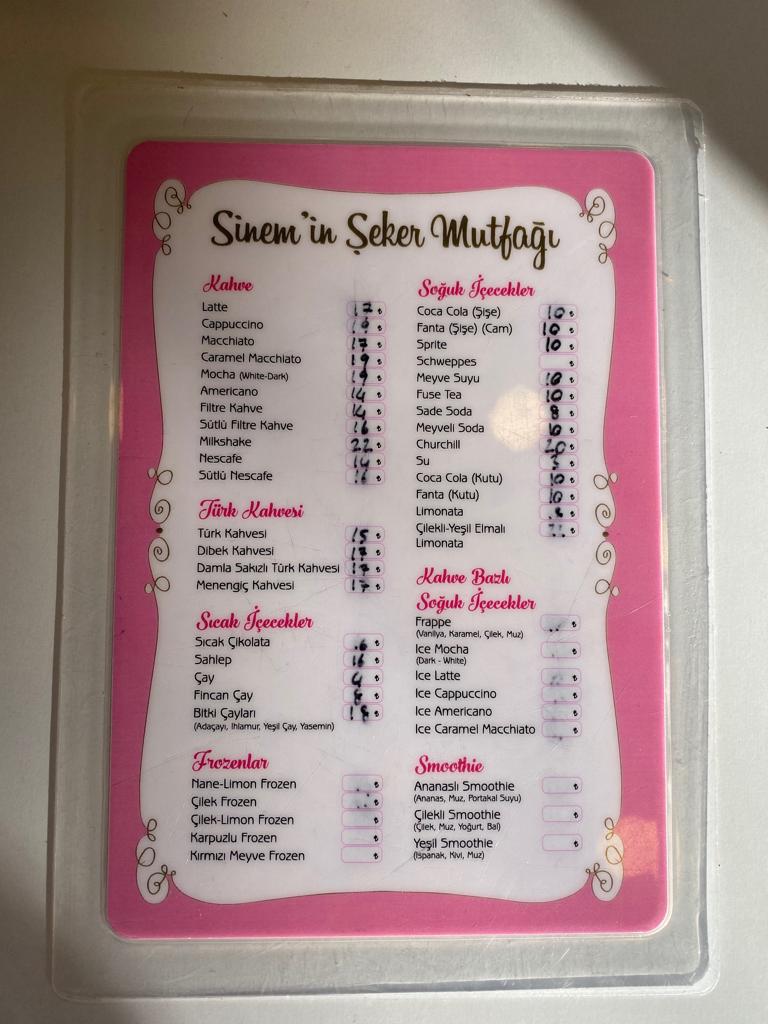 Sinem'in Şeker Mutfağı
Kahve
Latte 17 ₺
Cappuccino 19 ₺
Macchiato 17 ₺
Caramel Macchiato 19 ₺
Mocha (White-Dark) 19 ₺
Americano 14 ₺
Filtre Kahve 14 ₺
Sütlü Filtre Kahve 16 ₺
Milkshake 22 ₺
Nescafe 14 ₺
Sütlü Nescafe 16 ₺
Türk Kahvesi
Türk Kahvesi 15 ₺
Dibek Kahvesi 17 ₺
Damla Sakızlı Türk Kahvesi 17 ₺
Menengiç Kahvesi 17 ₺
Sıcak İçecekler
Sıcak Çikolata ₺
Sahlep 16 ₺
Çay 4 ₺
Fincan Çay 8 ₺
Bitki Çayları 18 ₺
(Adaçayı, Ihlamur, Yeşil Çay, Yasemin)
Frozenlar
Nane-Limon Frozen ₺
Çilek Frozen ₺
Çilek-Limon Frozen ₺
Karpuzlu Frozen ₺
Kırmızı Meyve Frozen ₺
Soğuk İçecekler
Coca Cola (Şişe) 10 ₺
Fanta (Şişe) (Cam) 10 ₺
Sprite 10 ₺
Schweppes ₺
Meyve Suyu 10 ₺
Fuse Tea 10 ₺
Sade Soda 8 ₺
Meyveli Soda 10 ₺
Churchill ₺
Su ₺
Coca Cola (Kutu) 10 ₺
Fanta (Kutu) 10 ₺
Limonata ₺
Çilekli-Yeşil Elmalı ₺
Limonata
Kahve Bazlı
Soğuk İçecekler
Frappe ₺
(Vanilya, Karamel, Çilek, Muz)
Ice Mocha ₺
(Dark - White)
Ice Latte ₺
Ice Cappuccino ₺
Ice Americano ₺
Ice Caramel Macchiato ₺
Smoothie
Ananaslı Smoothie ₺
(Ananas, Muz, Portakal Suyu)
Çilekli Smoothie ₺
(Çilek, Muz, Yoğurt, Bal)
Yeşil Smoothie ₺
(Ispanak, Kivi, Muz)